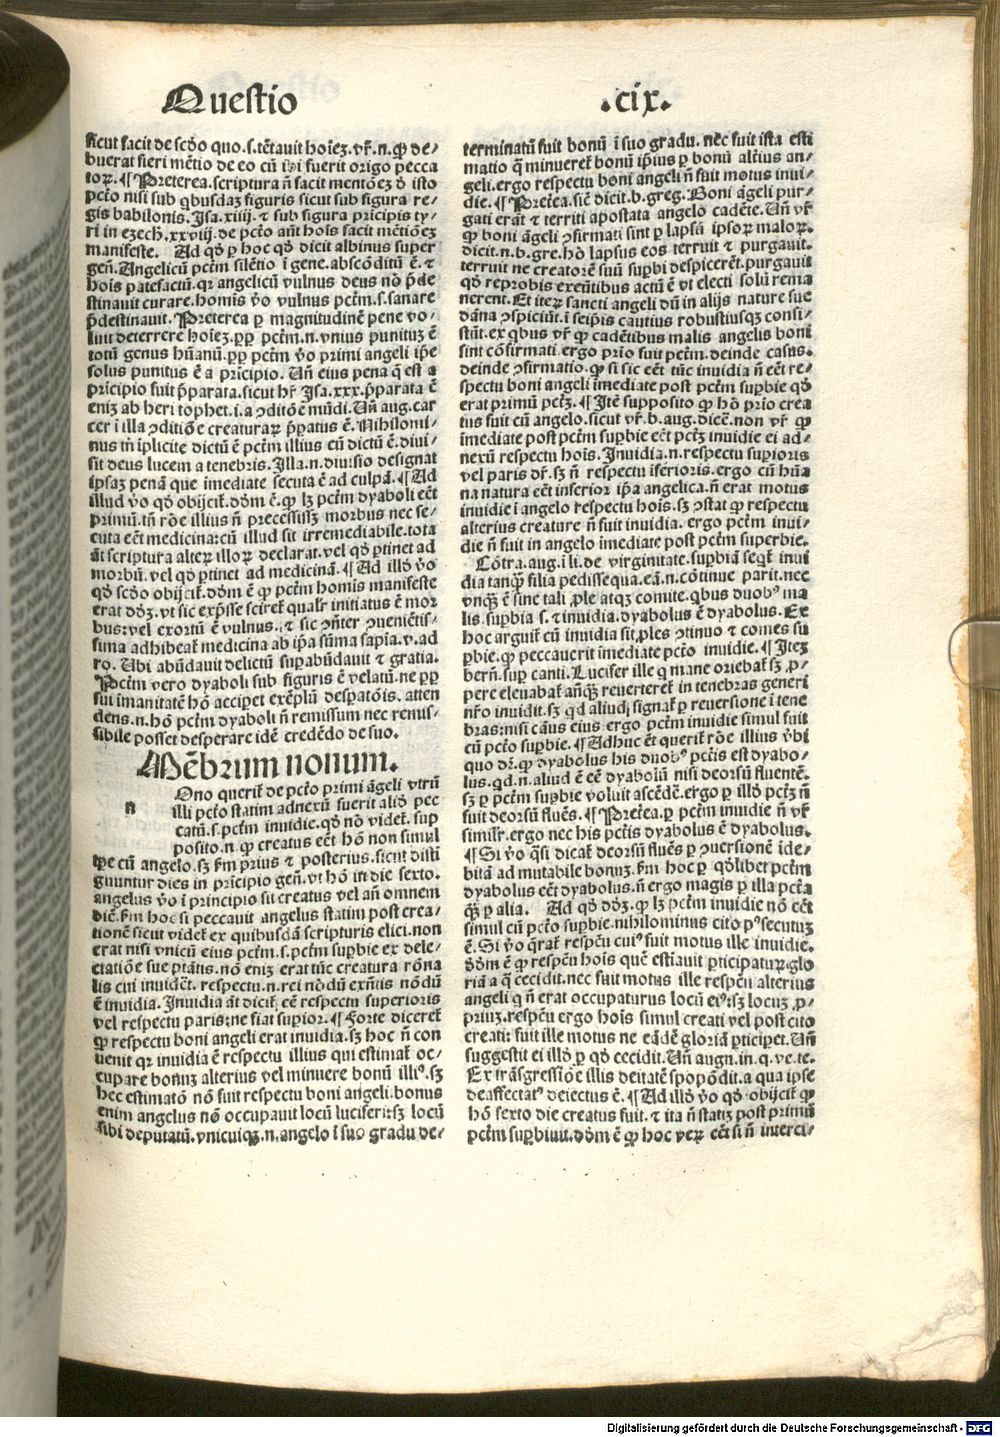 Questio .cix.
sicut facit de scd̄o quo.s.tētauit hoīeȝ.vr̄.n.ꝙ de/
buerat fieri mētio de eo cū ip̄i fuerit origo pecca
toꝝ. ¶ Preterea.scriptura n̄ facit mentōeȝ d̄ isto
pctō nisi sub quibusdaȝ figuris sicut sub figura re/
gis babilonis.Isa.xiiij. ⁊ sub figura prīcipis ty/
ri in ezech.xxviij.de pctō aūt hoīs facit mētiōeȝ
manifeste. Ad qd̄ ꝑ hoc qd̄ dicit albinus super
gen̄.Angelicū pctm̄ silētio ī gene.abscōditū ē. ⁊
hoīs patefactū.qꝛ angelicū vulnus deus nō p̄de
stinauit curare.homīs v̄o vulnus pctm̄.s.sanare
p̄destinauit. Preterea ꝑ magnitudinē pene vo/
luit deterrere hoīeȝ.ꝓꝑ pctm̄.n.vnius punituȝ ē
totū genus hūanū.ꝓꝑ pctm̄ v̄o primi angeli ip̄e
solus punitus ē a prīcipio. Vn̄ eius pena q̄ est a
prīcipio fuit p̄parata.sicut hr̄ Isa.xxx.p̄parata ē
eniȝ ab heri tophet.i.a ꝯditōe mūdi.Vn̄ aug.car
cer ī illa ꝯditiōe creaturaꝝ p̄patus ē. Nihilomi/
nus tn̄ īplicite dictū ē pctm̄ illius cū dictū ē.diui/
sit deus lucem a tenebris.Illa.n.diuisio designat
ipsaȝ penā que imediate secuta ē ad culpā. ¶ Ad
illud v̄o qd̄ obijcit̄.dōm ē.ꝙ lȝ pctm̄ dyaboli eēt
primū.tn̄ rōe illius n̄ precessisȝ morbus nec se/
cuta eēt medicina:cū illud sit irremediabile.tota
aūt scriptura alteꝝ illoꝝ declarat.vel qd̄ ꝑtinet ad
morbū.vel qd̄ ꝑtinet ad medicinā. ¶ Ad illd̄ v̄o
qd̄ scd̄o obijcit̄.dōm ē ꝙ pctm̄ homīs manifeste
erat dōȝ.vt sic exp̄sse sciret̄ qualr̄ initiatus ē mor
bus:vel exortū ē vulnus. ⁊ sic ꝯn̄ter ꝯuenietis/
sima adhibeat̄ medicina ab ip̄a sūma sapīa.v.ad
ro. Vbi abūdauit delictū suꝑabūdauit ⁊ gratia.
Pctm̄ vero dyaboli sub figuris ē velatū.ne ꝓꝑ
sui imanitatē hō acciꝑet exēplū desꝑatōis.atten
dens.n.hō pctm̄ dyaboli n̄ remissum nec remis/
sibile posset desperare idē credēdo de suo.
Mēbrum nonum.
n
Ono querit̄ de pctō primi āgeli vtrū
illi pctō statim adnexū fuerit aliō pec
catū.s.pctm̄ inuidie.qd̄ nō videt̄. sup
posito.n.ꝙ creatus eēt hō non simul
tꝑe cū angelo.sȝ ẜm prius ⁊ posterius.sicut disti
guuntur dies in prīcipio gen̄.vt hō in die sexto.
angelus v̄o ī principio sit creatus vel añ omnem
diē.ẜm hoc si peccauit angelus statim post crea/
tionē sicut videt̄ ex quibusdā scripturis elici.non
erat nisi vnicū eius pctm̄.s.pctm̄ suꝑbie ex dele/
ctatiōe sue ptātis.nō eniȝ erat tūc creatura rōna
lis cui inuidēt. respectu.n.rei nōdū exn̄tis nōdū
ē inuidia.Inuidia āt dicit̄ eē respectu superioris
vel respectu paris:ne fiat suꝑior. ¶ Forte diceret̄
ꝙ respectu boni angeli erat inuidia.sȝ hoc n̄ con
uenit qꝛ inuidia ē respectu illius qui estimat̄ oc/
cupare bonuȝ alterius vel minuere bonū illiꝰ.sȝ
hec estimatō nō fuit respectu boni angeli.bonus
enim angelus nō occupauit locū luciferi:sȝ locū
sibi deputatū.vnicuiqȝ.n.angelo ī suo gradu de/
terminatū fuit bonū ī suo gradu. nec fuit ista esti
matio q̄ minueret̄ bonū ip̄ius ꝑ bonū alteius an/
geli.ergo respectu boni angeli n̄ fuit motus inui/
die. ¶ Pretea.sic̄ dicit.b.greg.Boni āgeli pur/
gati erāt ⁊ territi apostata angelo cadēte.Vn̄ vr̄
ꝙ boni āgeli ꝯfirmati sint ꝑ lapsū ipsoꝝ maloꝝ.
dicit.n.b.gre.hō lapsus eos terruit ⁊ purgauit.
terruit ne creatorē suū suꝑbi despicerēt.purgauit
qd̄ reprobis exeūtibus actū ē vt electi solū rema
nerent.Et iteꝝ sancti angeli dū in alijs nature sue
dāna ꝯspiciūt.ī seipīs cautius robustiusqȝ consi/
stūt.ex quibus vr̄ ꝙ cadētibus malis angelis boni
sint cōfirmati.ergo prīo fuit pctm̄.deinde casus.
deinde ꝯfirmatio.ꝙ si sic eēt tūc inuidia n̄ eēt re/
spectu boni angeli īmediate post pctm̄ suꝑbie qd̄
erat primū pctȝ. ¶ Itē supposito ꝙ hō prīo crea
tus fuit cū angelo.sicut vr̄.b.aug.dicē.non vr̄ ꝙ
īmediate post pctm̄ suꝑbie eēt pctȝ inuidie ei ad/
nexū respectu hoīs.Inuidia.n.respectu suꝑioris
vel paris dr̄.sȝ n̄ respectu īferioris.ergo cū hūa
na natura eēt inferior ip̄a angelica.n̄ erat motus
inuidie ī angelo respectu hoīs.sȝ ꝯstat ꝙ respectu
alterius creature n̄ fuit inuidia. ergo pctm̄ inui/
die n̄ fuit in angelo imediate post pctm̄ superbie.
Cōtra.aug.ī li.de virginitate.suꝑbiā seqt̄ inui
dia tanqȝ filia pedissequa.eā.n.cōtinue parit.nec
vnqȝ ē sine tali ꝓle atqȝ comite.quibus duobꝰ ma
lis.suꝑbia s. ⁊ inuidia.dyabolus ē dyabolus. Ex
hoc arguit̄ cū inuidia sit ꝓles ꝯtinuo ⁊ comes su
ꝑbie.ꝙ peccauerit īmediate pctō inuidie. ¶ Iteȝ
bern̄.suꝑ canti.Lucifer ille q̄ mane oriebat̄ sȝ ꝓ/
pere eleuabat̄ anqȝ reuerteret̄ in tenebras generi
nr̄o inuidit.sȝ qd aliud signat̄ ꝑ reuersionē ī tene
bras:nisi cāus eius ergo pctm̄ inuidie simul fuit
cū pctō suꝑbie. ¶ Adhuc ēt querit̄ rōe illius v̄bi
quo dr̄.ꝙ dyabolus his duobꝰ pctīs est dyabo/
lus.qd.n.aliud ē eē dyabolū nisi deorsū fluentē.
sȝ ꝑ pctm̄ suꝑbie voluit ascēdē.ergo ꝑ illō pctȝ n̄
fuit deorsū fluēs. ¶ Pretea.ꝑ pctm̄ inuidie n̄ vr̄
similr̄.ergo nec his pctīs dyabolus ē dyabolus.
¶ Si v̄o q̄si dicat̄ deorsū fluēs ꝑ ꝯuersionē īde/
bitā ad mutabile bonuȝ.ẜm hoc ꝑ qd̄libet pctm̄
dyabolus eēt dyabolus.n̄ ergo magis ꝑ illa pctā
qȝ ꝑ alia. Ad qd̄ dōȝ.ꝙ lȝ pctm̄ inuidie nō eēt
simul cū pctō suꝑbie.nihilominus cito pꝰsecutuȝ
ē.Si v̄o q̄rat̄ respcū cuiꝰ fuit motus ille inuidie.
dōm ē ꝙ respcū hoīs quē estiauit ꝑticipatuꝝ.glo
riā a q̄ cecidit.nec fuit motus ille respcū alterius
angeli q̄ n̄ erat occupaturus locū eiꝰ:sȝ locuȝ ꝓ/
priuȝ.respcū ergo hoīs simul creati vel post cito
creati: fuit ille motus ne eādē gloriā ꝑticipet.Vn̄
suggestit ei illō ꝑ qd̄ cecidit.Vn̄ augn.in.q.ve.te.
Ex trāsgressiōe illis deitatē spopōdit.a qua ipse
deaffectatꝰ deiectus ē. ¶ Ad illd̄ v̄o qd̄ obijcit̄ ꝙ
hō sexto die creatus fuit. ⁊ ita n̄ statiȝ post primū
pctm̄ suꝑbiuit.dōm ē ꝙ hoc veꝝ eēt si n̄ interci/
Digitalisierung gefördert durch die Deutsche Forschungsgemeinschaft - DFG